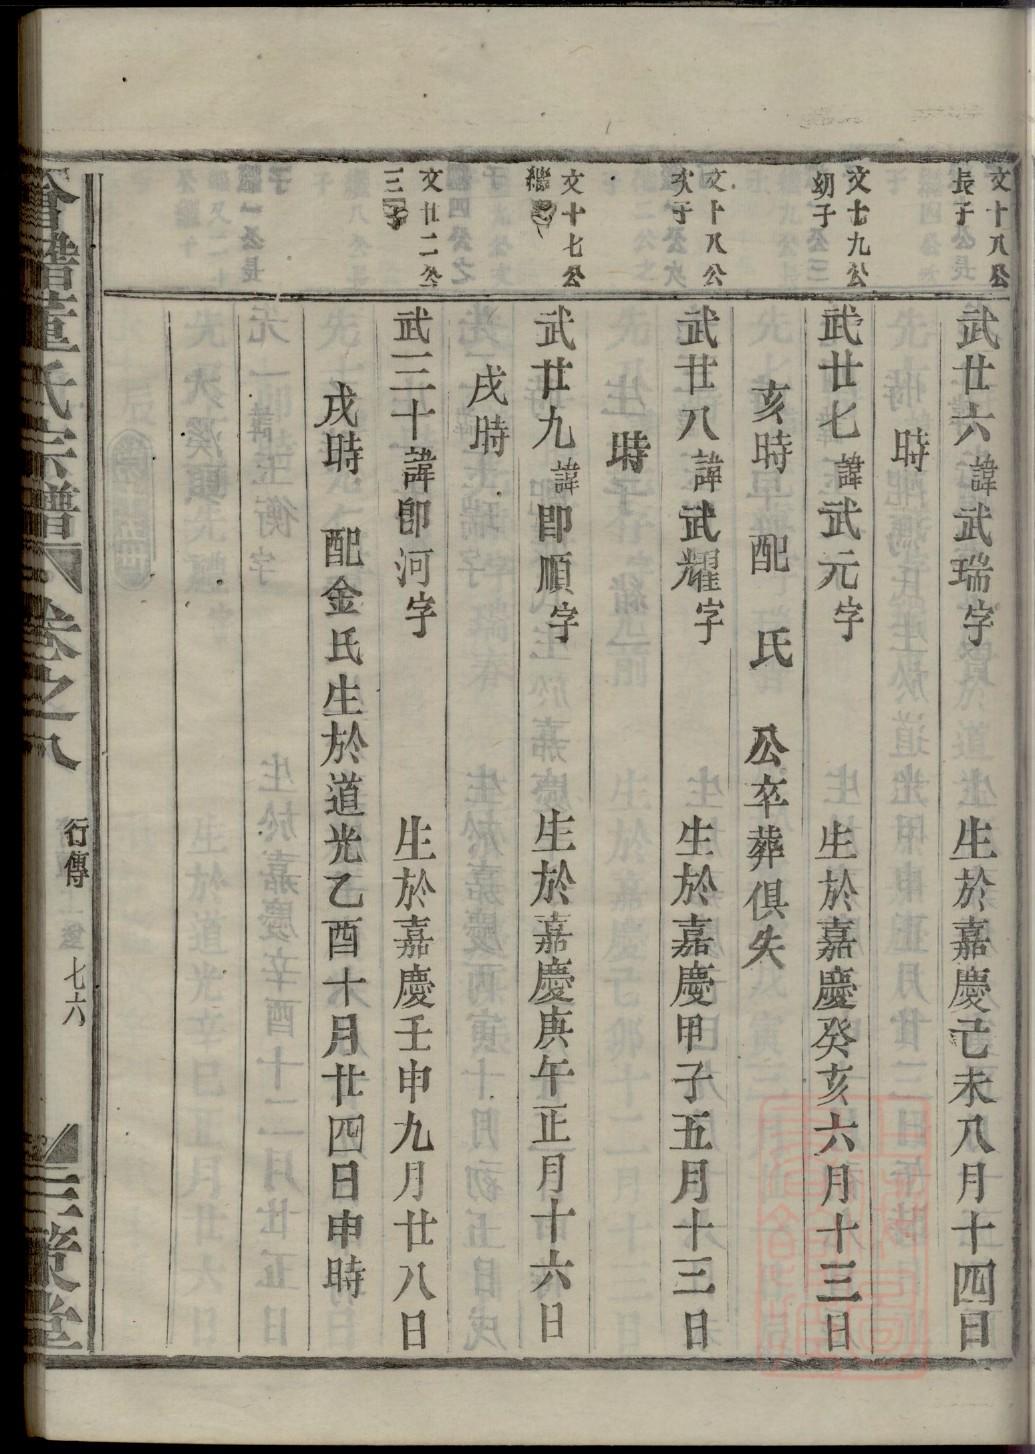 文十八公
長子
武廿六諱武瑞字　生於嘉慶己未八月十四日
時
文十九公
幼子
武廿七諱武元字　生於嘉慶癸亥六月十三日
亥時　配　氏　公卒葬俱失
文十八公
次子
武廿八諱武耀字　生於嘉慶甲子五月十三日
時
文十七公
繼
武廿九諱卽順字　生於嘉慶庚午正月十六日
戌時
文廿二公
三子
武三十諱卽河字　生於嘉慶壬申九月廿八日
戌時　配金氏生於道光乙酉十月廿四日申時
會稽董氏宗譜　卷之八　行傳　七六　三策堂